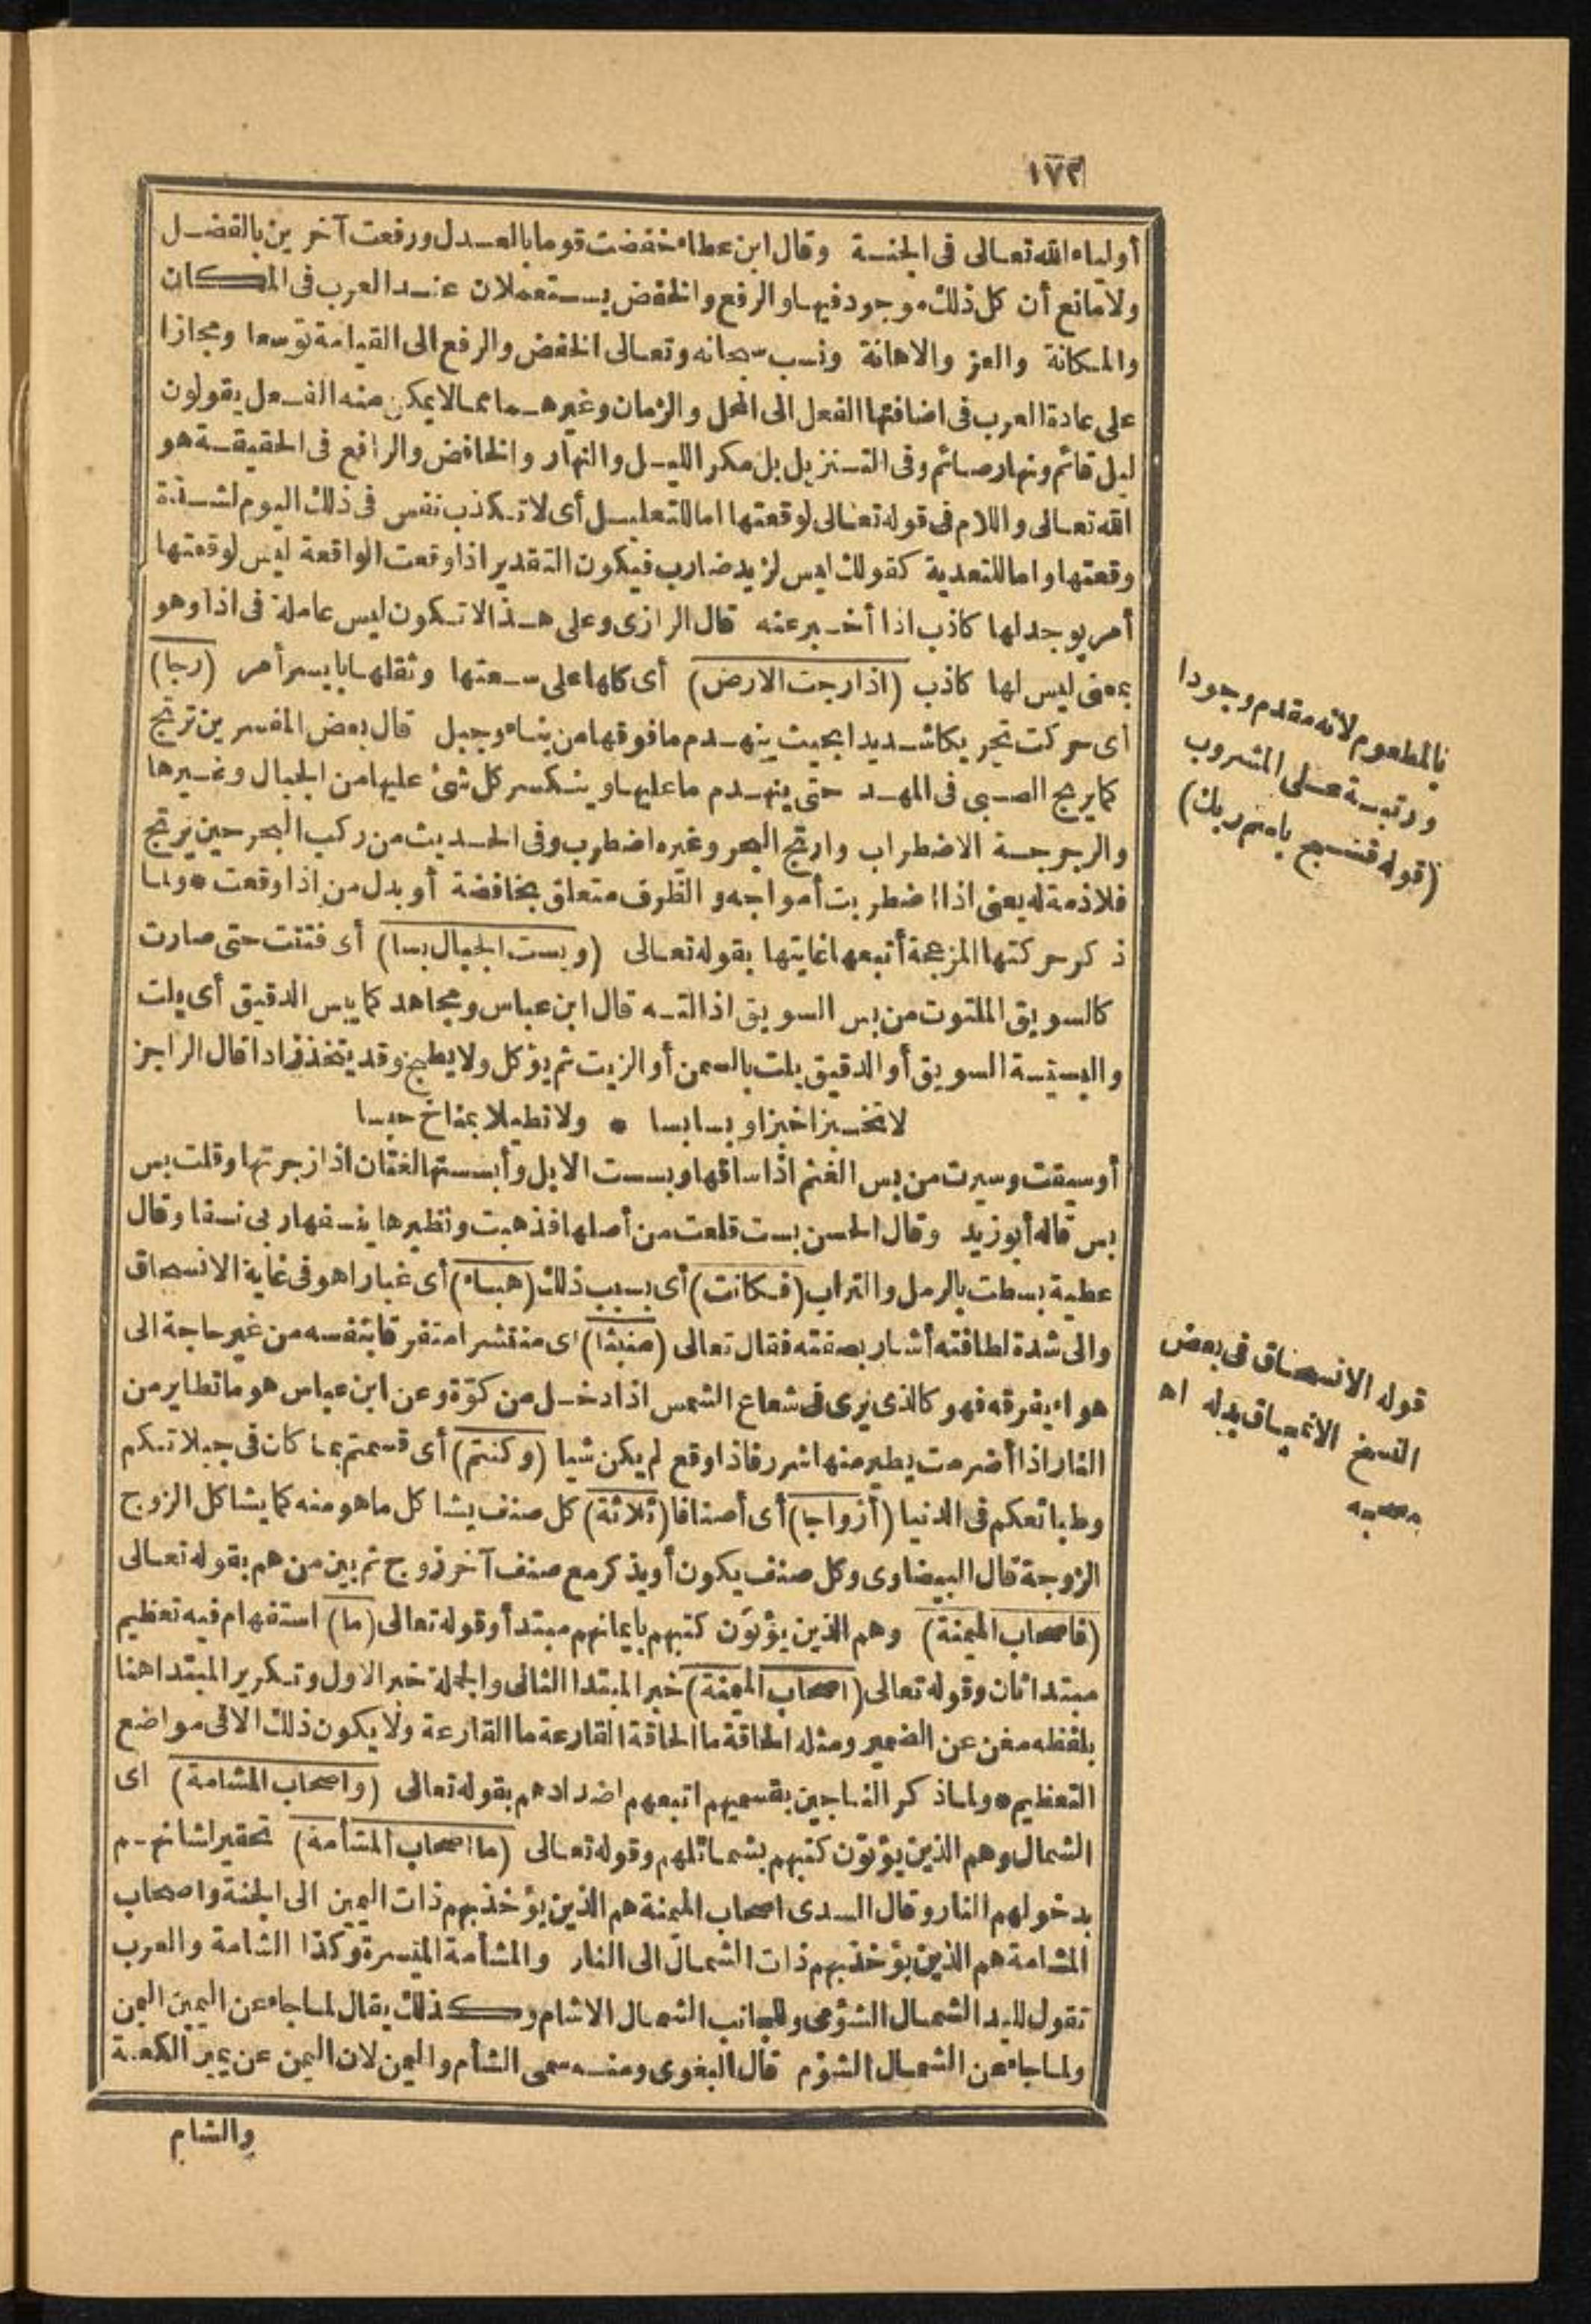 ١٧٢
أولياء الله تعالى فى الجنة وقال ابن عطاء خفضت قوما بالعدل ورفعت آخرين بالفضل
ولا مانع أن كل ذلك موجود فيها والرفع والخفض يستعملان عند العرب فى المكان
والمكانة والعز والاهانة ونسب سبحانه وتعالى الخفض والرفع الى القيامة توسعا ومجازا
على عادة العرب فى اضافتها الفعل الى المحل والزمان وغيرهما مما لا يمكن منه الفعل يقولون
ليل قائم ونهار صائم وفى التنزيل بل مكر الليل والنهار والخافض والرافع فى الحقيقة هو
الله تعالى واللام فى قوله تعالى لوقعتها اما للتعليل أى لا تكذب نفس فى ذلك اليوم لشدة
وقعتها واما للتعدية كقولك ليس لزيد ضارب فيكون التقدير اذا وقعت الواقعة ليس لوقعتها
أمر يوجد لها كاذب اذا أخبر عنه قال الرازى وعلى هذا لا تكون ليس عاملة فى اذا وهو
بمعنى ليس لها كاذب (اذا رجت الارض) أى كلها على سعتها وثقلها بايسر أمر (رجا)
أى حركت تحريكا شديدا بحيث ينهدم ما فوقها من بناء وجبل قال بعض المفسرين ترتج
كما يرج الصبى فى المهد حتى ينهدم ما عليها وينكسر كل شئ عليها من الجبال وغيرها
والرجرجة الاضطراب وارتج البحر وغيره اضطرب وفى الحديث من ركب البحر حين يرتج
فلا ذمة له يعنى اذا اضطربت أمواجه والظرف متعلق بخافضة أو بدل من اذا وقعت * ولما
ذكر حركتها المزعجة أتبعها غايتها بقوله تعالى (وبست الجبال بسا) أى فتتت حتى صارت
كالسويق الملتوت من بس السويق اذا لته قال ابن عباس ومجاهد كما يبس الدقيق أى يلت
والبسيسة السويق أو الدقيق يلت بالسمن أو الزيت ثم يؤكل ولا يطبخ وقد يتخذ زادا قال الراجز
لا تخبزا خبزا وبسا بسا * ولا تطيلا بمناخ حبسا
أو سيقت وسيرت من بس الغنم اذا ساقها وبسست الابل وأبسستها لغتان اذا زجرتها وقلت بس
بس قاله أبو زيد وقال الحسن بست قلعت من أصلها فذهبت ونظيرها ينسفها ربى نسفا وقال
عطية بسطت بالرمل والتراب (فكانت) أى بسبب ذلك (هباء) أى غبارا هو فى غاية الانسحاق
والى شدة لطافته أشار بصفته فقال تعالى (منبثا) أى منتشرا متفرقا بنفسه من غير حاجة الى
هواء يفرقه فهو كالذى يرى فى شعاع الشمس اذا دخل من كوّة وعن ابن عباس هو ما تطاير من
النار اذا أضرمت يطير منها شرر فاذا وقع لم يكن شيا (وكنتم) أى قسمتم بما كان فى جبلاتكم
وطبائعكم فى الدنيا (أزواجا) أى أصنافا (ثلاثة) كل صنف يشاكل ما هو منه كما يشاكل الزوج
الزوجة قال البيضاوى وكل صنف يكون أو يذكر مع صنف آخر زوج ثم بين من هم بقوله تعالى
(فاصحاب الميمنة) وهم الذين يؤتون كتبهم بايمانهم مبتدأ وقوله تعالى (ما) استفهام فيه تعظيم
مبتدا ثان وقوله تعالى (اصحاب الميمنة) خبر المبتدا الثانى والجملة خبر الاول وتكرير المبتدا هنا
بلفظه مغن عن الضمير ومثله الحاقة ما الحاقة القارعة ما القارعة ولا يكون ذلك الا فى مواضع
التعظيم * ولما ذكر الناجين بقسميهم اتبعهم اضدادهم بقوله تعالى (واصحاب المشامة) اى
الشمال وهم الذين يؤتون كتبهم بشمائلهم وقوله تعالى (ما اصحاب المشأمة) تحقير لشانهم
بدخولهم النار وقال السدى اصحاب الميمنة هم الذين يؤخذ بهم ذات اليمين الى الجنة واصحاب
المشامة هم الذين يؤخذ بهم ذات الشمال الى النار والمشأمة الميسرة وكذا الشامة والعرب
تقول لليد الشمال الشؤمى وللجانب الشمال الاشام وكذلك يقال لما جاء عن اليمين اليمن
ولما جاء عن الشمال الشؤم قال البغوى ومنه سمى الشأم واليمن لان اليمن عن يمين الكعبة
والشام
فالمطعوم لانه مقدم وجودا
ورتبة على المشروب
(قوله فسبح باسم ربك)
قوله الانسحاق فى بعض
النسخ الانمحاق بدله اه
مصححه